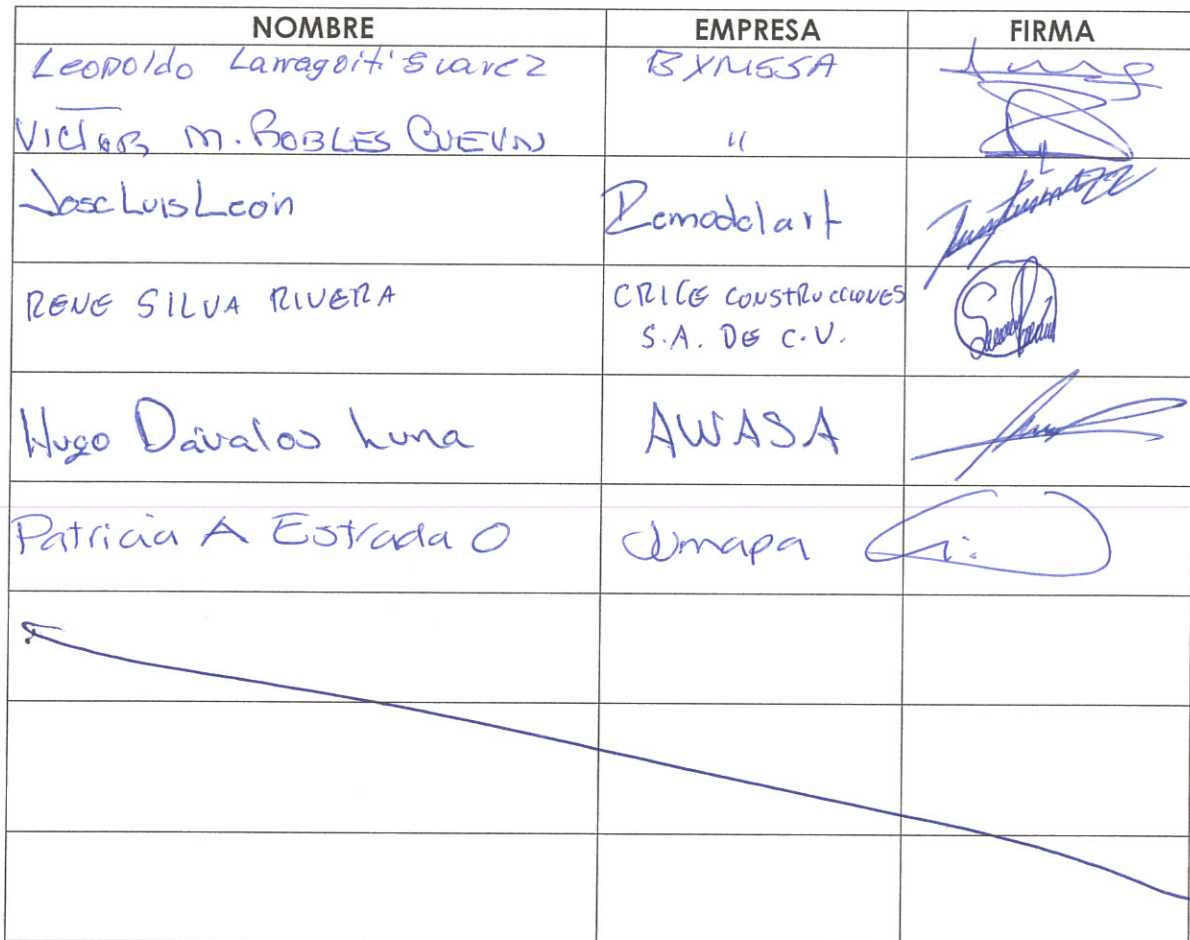 NOMBRE EMPRESA FIRMA
Leopoldo Larragoiti Suarez BXMSSA
VICTOR M. ROBLES CUEVA "
Jose Luis León Remodelart
RENE SILVA RIVERA CRICE CONSTRUCCIONES
S.A. DE C.V.
Hugo Dávalos Luna AWASA
Patricia A Estrada O Jumapa